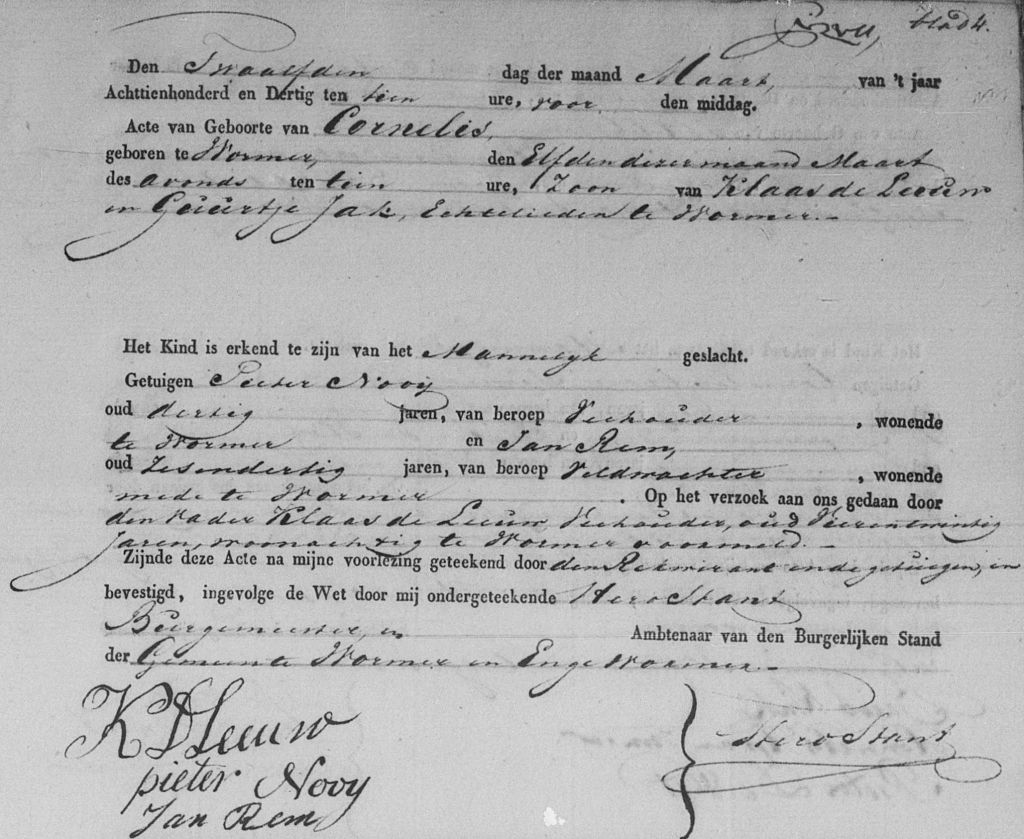 blad 4.
Den Twaalfden dag der maand Maart, van 't jaar
Achttienhonderd en Dertig ten tien ure, voor den middag.
Acte van Geboorte van Cornelis,
geboren te Wormer, den Elfden dezer maand Maart
des avonds ten tien ure, Zoon van Klaas de Leeuw
en Guurtje Jak, Echtelieden te Wormer.
Het Kind is erkend te zijn van het Mannelyk geslacht.
Getuigen Pieter Nooy
oud dertig jaren, van beroep Veehouder, wonende
te Wormer en Jan Rem,
oud Zesendertig jaren, van beroep Veldwachter, wonende
mede te Wormer. Op het verzoek aan ons gedaan door
den vader Klaas de Leeuw, Veehouder, oud Vierentwintig
Jaren, woonachtig te Wormer voormeld.
Zijnde deze Acte na mijne voorlezing geteekend door den Rekwirant ende getuigen, en
bevestigd, ingevolge de Wet door mij ondergeteekende Hero Stant
Burgemeester, en Ambtenaar van den Burgerlijken Stand
der Gemeente Wormer en Enge Wormer.
K D Leeuw
Hero Stant
pieter Nooy
Jan Rem